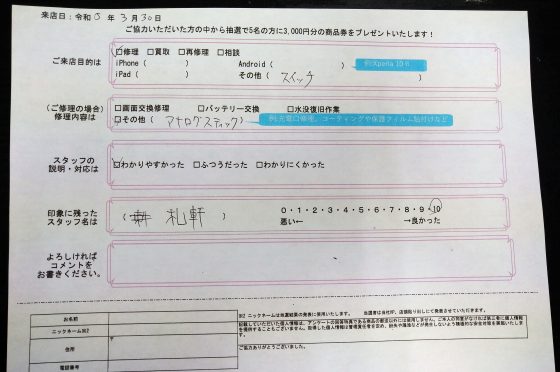 来店日：令和 5 年 3月30日
ご協力いただいた方の中から抽選で5名の方に3,000円分の商品券をプレゼントいたします！
ご来店目的は
☑修理 □買取 □再修理 □相談
iPhone（ ） Android（ ） 例)Xperia 10 Ⅱ
iPad（ ） その他（ スイッチ ）
（ご修理の場合）
修理内容は
□画面交換修理 □バッテリー交換 □水没復旧作業
☑その他（ アナログスティック ） 例)充電口修理、コーティングや保護フィルム貼付けなど
スタッフの
説明・対応は
☑わかりやすかった □ふつうだった □わかりにくかった
印象に残った
スタッフ名は
（ 札軒 ）
0・1・2・3・4・5・6・7・8・9・10
悪い← →良かった
よろしければ
コメントを
お書きください。
お名前
ニックネーム※2
住所
〒
電話番号
※2 ニックネームは抽選結果の発表に使用いたします。 当選者は当社HP、店頭貼り出しにて発表させていただきます。
ご協力ありがとうございました。